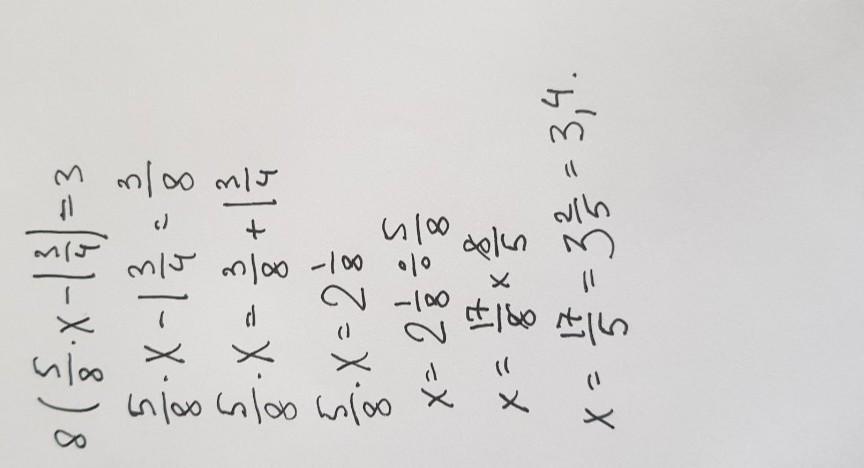 8(5/8·x-1 3/4)=3
5/8·x-1 3/4=3/8
5/8·x=3/8+1 3/4
5/8·x=2 1/8
x=2 1/8 ÷ 5/8
x=17/8 × 8/5
x=17/5=3 2/5=3,4.